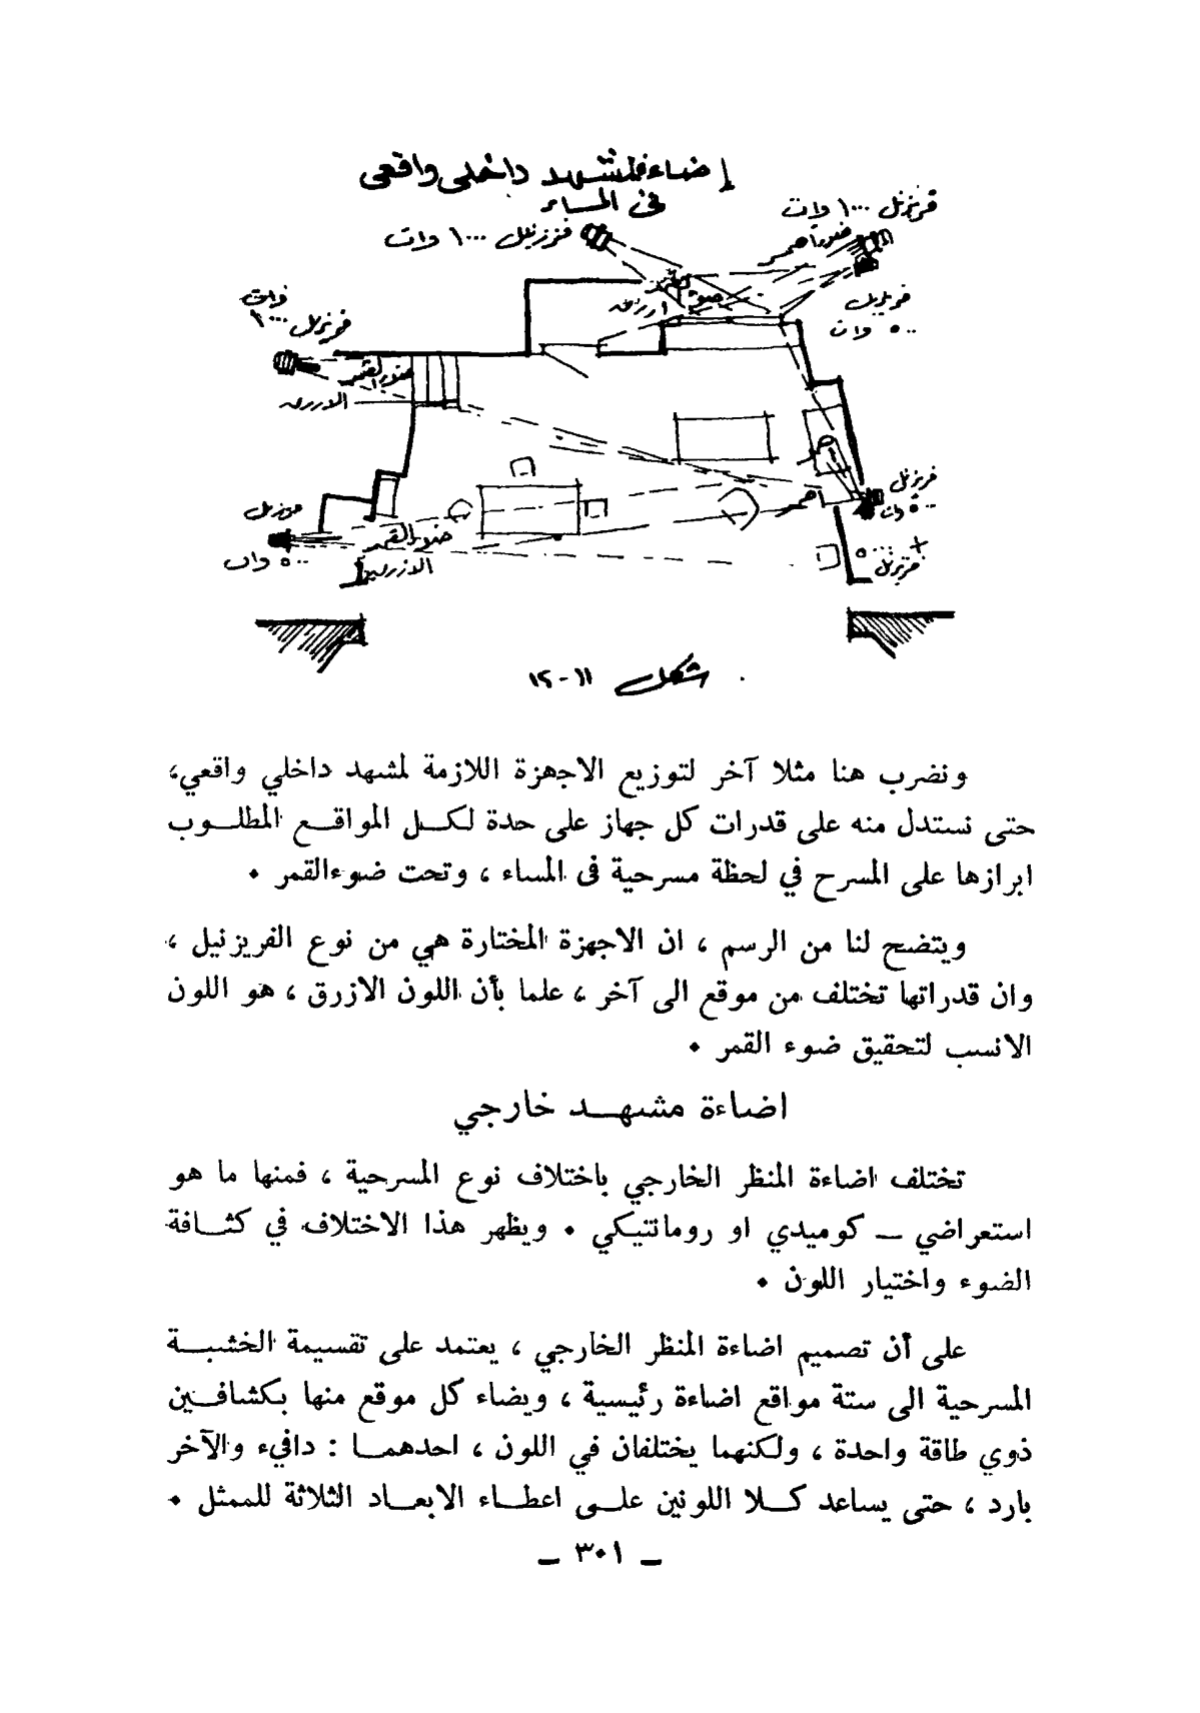 إضاءة لمشهد داخلى واقعى
فى المساء
فرزنيل ١٠٠٠ وات
فريزنل ١٠٠٠ وات
ضوء احمر
فريزنيل
٥٠٠ وات
ضوء
ازرق
فريزنل
١٠٠٠
وات
ضوء القمر
الازرق
فريزنل
٥٠٠ وات
احمر
فريزنل
٥٠٠ وات
ضوء القمر
الازرق
+
٥٠٠
فريزنل
شكل ١١-١٢
ونضرب هنا مثلا آخر لتوزيع الاجهزة اللازمة لمشهد داخلي واقعي،
حتى نستدل منه على قدرات كل جهاز على حدة لكل المواقع المطلوب
ابرازها على المسرح في لحظة مسرحية فى المساء ، وتحت ضوءالقمر ٠
ويتضح لنا من الرسم ، ان الاجهزة المختارة هي من نوع الفريزنيل ،
وان قدراتها تختلف من موقع الى آخر ، علما بأن اللون الازرق ، هو اللون
الانسب لتحقيق ضوء القمر ٠
اضاءة مشهد خارجي
تختلف اضاءة المنظر الخارجي باختلاف نوع المسرحية ، فمنها ما هو
استعراضي ــ كوميدي او رومانتيكي ٠ ويظهر هذا الاختلاف في كثافة
الضوء واختيار اللون ٠
على أن تصميم اضاءة المنظر الخارجي ، يعتمد على تقسيمة الخشبة
المسرحية الى ستة مواقع اضاءة رئيسية ، ويضاء كل موقع منها بكشافين
ذوي طاقة واحدة ، ولكنهما يختلفان في اللون ، احدهما : دافيء والآخر
بارد ، حتى يساعد كلا اللونين على اعطاء الابعاد الثلاثة للممثل ٠
ــ ٣٠١ ــ